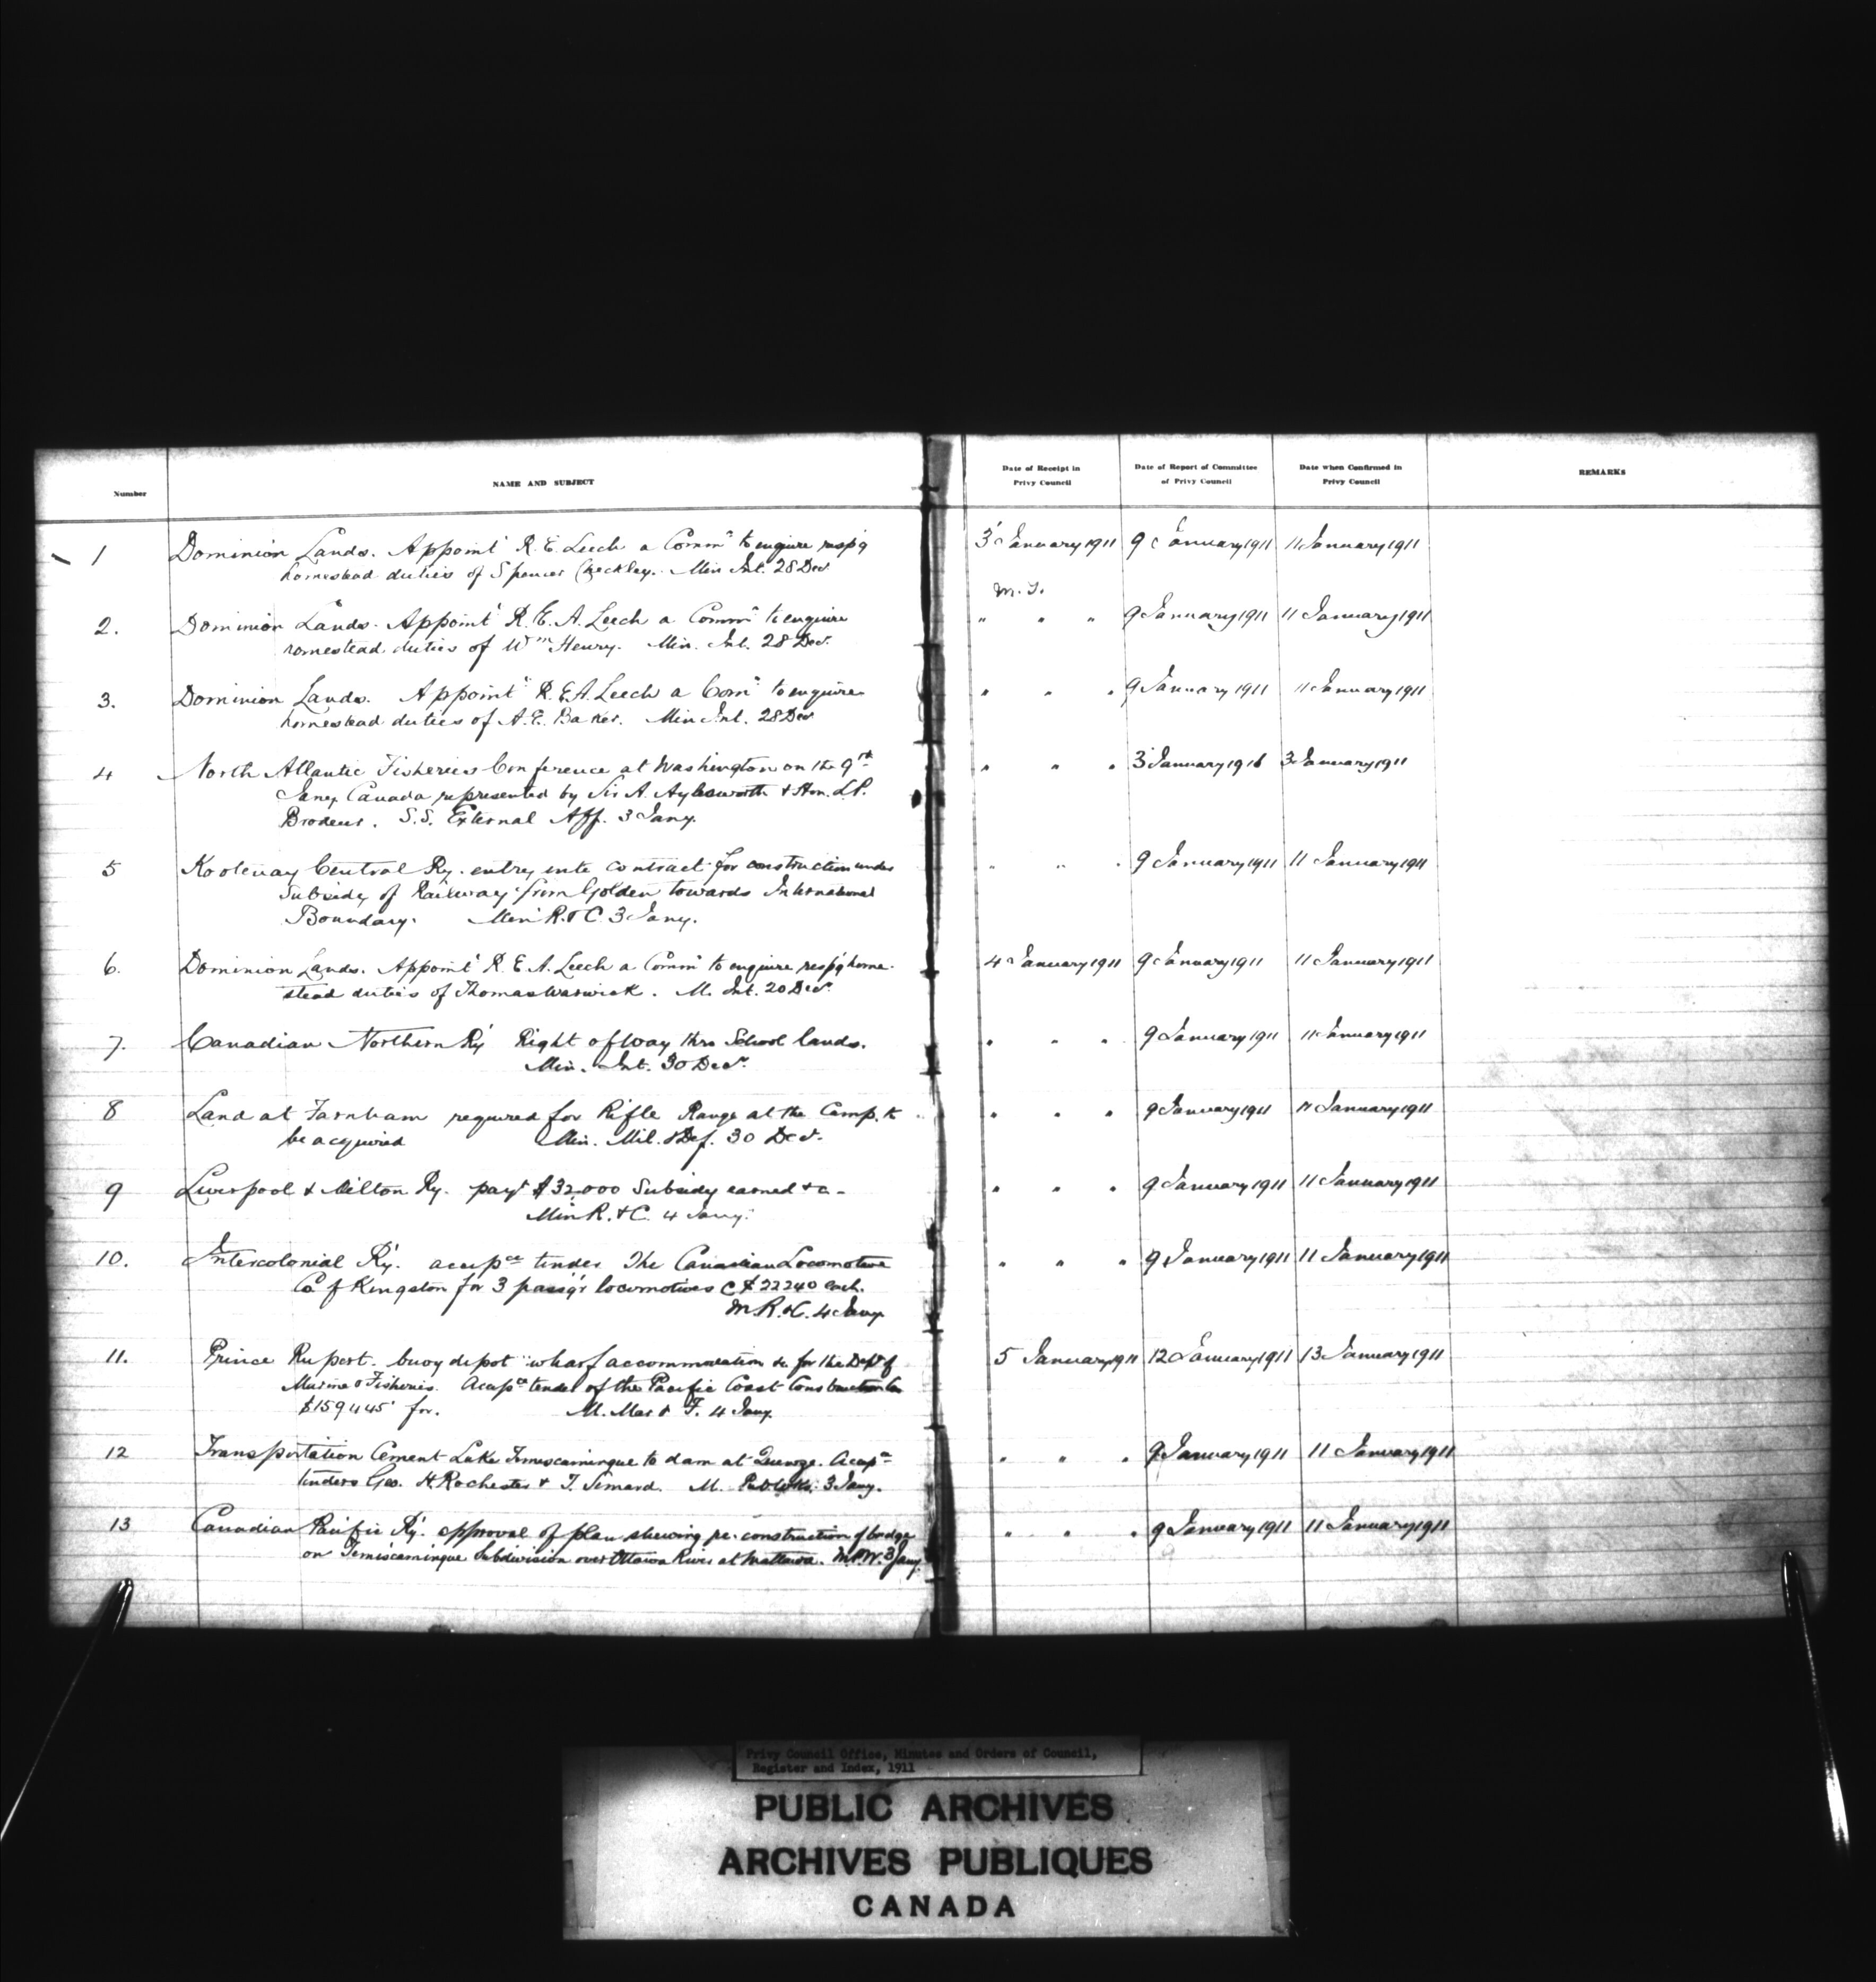 Number
NAME AND SUBJECT
Date of Receipt in
Privy Council
Date of Report of Committee
of Privy Council
Date when Confirmed in
Privy Council
REMARKS
1 Dominion Lands. Appoint' R. E. Leech a Comm'r to enquire resp'g 3 January 1911 9 January 1911 11 January 1911
homestead duties of Spencer Checkley. Min Int. 28 Dec'r
2. Dominion Lands. Appoint' R. E. A. Leech a Comm'r to enquire " " " 9 January 1911 11 January 1911
homestead duties of Wm Henry. Min. Int. 28 Dec'r
3. Dominion Lands. Appoint' R. E. A. Leech a Com'r to enquire " " " 9 January 1911 11 January 1911
homestead duties of A. E. Baker. Min Int. 28 Dec'r
4 North Atlantic Fisheries Conference at Washington on the 9th " " " 3 January 1911 3 January 1911
Jany Canada represented by Sir A. Aylesworth & Hon. L.P.
Brodeur. S.S. External Aff. 3 Jany.
5 Kootenay Central Ry. entry into contract for construction under " " " 9 January 1911 11 January 1911
Subsidy of Railway from Golden towards International
Boundary. Min R. & C. 3 Jany.
6. Dominion Lands. Appoint' R. E. A. Leech a Comm'r to enquire resp'g home- 4 January 1911 9 January 1911 11 January 1911
stead duties of Thomas Warwick. M. Int. 20 Dec'r
7. Canadian Northern Ry Right of Way thro School lands. " " " 9 January 1911 11 January 1911
Min. Int. 30 Dec'r
8 Land at Farnham required for Rifle Range at the Camp. to " " " 9 January 1911 11 January 1911
be acquired Min. Mil. & Def. 30 Dec'r.
9 Liverpool & Milton Ry. pay't $32,000 Subsidy earned &c - " " " 9 January 1911 11 January 1911
Min R. & C. 4 Jany.
10. Intercolonial Ry. accep'ce tender The Canadian Locomotive " " " 9 January 1911 11 January 1911
Co of Kingston for 3 passg'r locomotives @ $22240 each.
M R. & C. 4 Jany
11. Prince Rupert. buoy depot wharf accommodation &c for the Dept of 5 January 1911 12 January 1911 13 January 1911
Marine & Fisheries. Accep'ce tender of the Pacific Coast Construction Co
$159445 for. M. Mar & F. 4 Jany.
12 Transportation Cement Lake Timiscamingue to dam at Quinze. Accep'ce " " " 9 January 1911 11 January 1911
tenders Geo. H. Rochester & T. Simard. M. Pub Wks. 3 Jany.
13 Canadian Pacific Ry. approval of plan shewing re-construction of bridge " " " 9 January 1911 11 January 1911
on Temiscamingue Subdivision over Ottawa River at Mattawa. M.P.W. 3 Jany
Privy Council Office, Minutes and Orders of Council,
Register and Index, 1911
PUBLIC ARCHIVES
ARCHIVES PUBLIQUES
CANADA